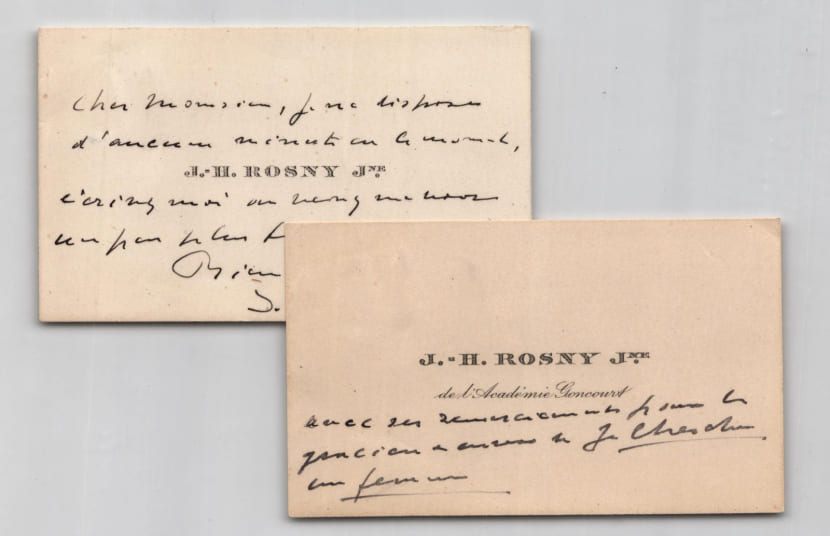 Cher Monsieur, je ne dispose
d'aucune minute en ce moment,
J.-H. ROSNY JNE
écrivez moi ou venez me voir
un peu plus t
Bien
J.
J.-H. ROSNY JNE
de l'Académie Goncourt
avec ses remerciements pour le
gracieux envoi de Je Cherche
une femme